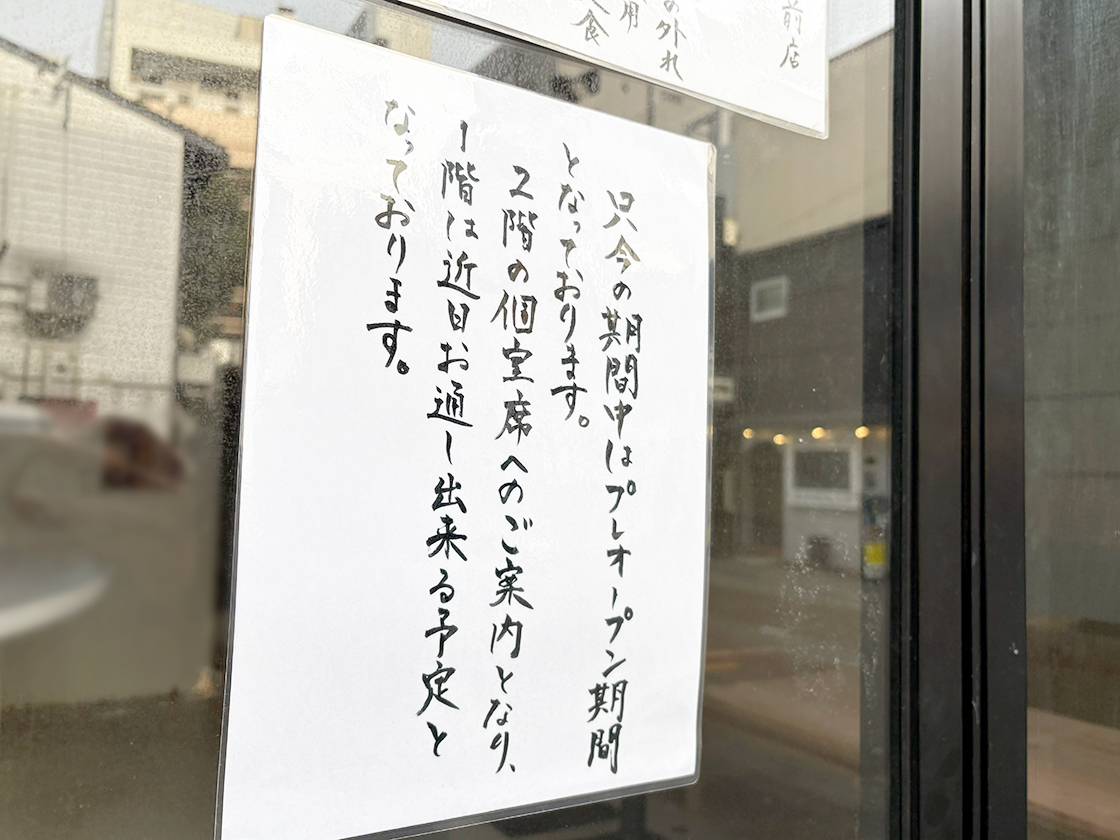 前店
の外れ
用
食
只今の期間中はプレオープン期間
となっております。
2階の個室席へのご案内となり、
1階は近日お通し出来る予定と
なっております。